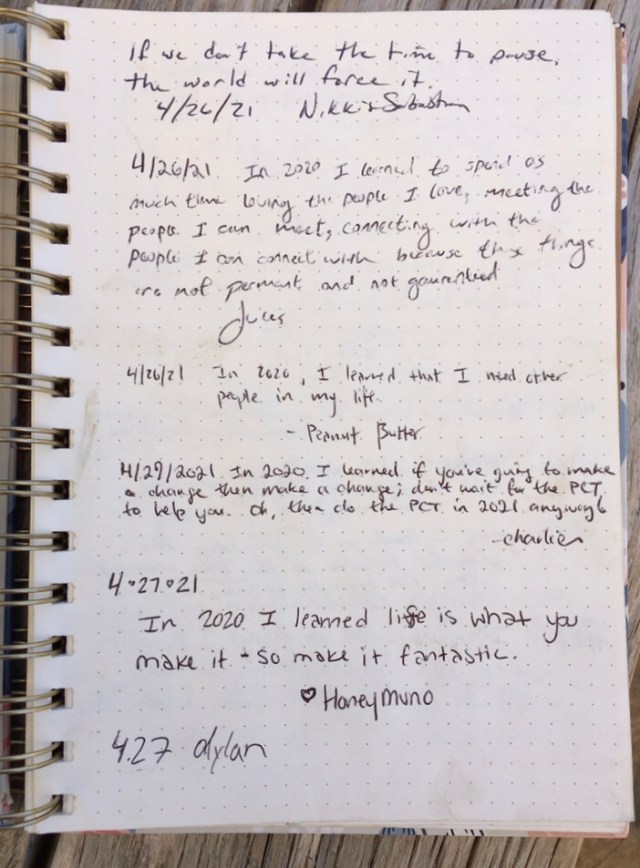 If we don't take the time to pause,
the world will force it.
4/26/21 Nikki & Sebastian
4/26/21 In 2020 I learned to spend as
much time loving the people I love, meeting the
people I can meet, connecting with the
people I can connect with because these things
are not permant and not gaurenteed
Jules
4/26/21 In 2020, I learned that I need other
people in my life.
- Peanut Butter
4/27/2021 In 2020 I learned if you're going to make
a change then make a change; don't wait for the PCT
to help you. Oh, then do the PCT in 2021 anyway
-charlie
4•27•21
In 2020 I learned life is what you
make it - so make it fantastic.
♡ HoneyMuno
4.27 dylan